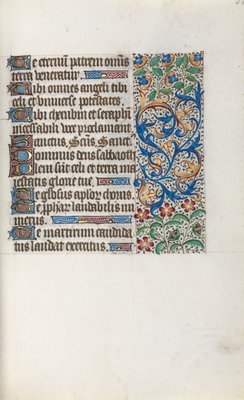 Te eternũ patrem omnis
terra veneratur.
Tibi omnes angeli tibi
celi et vniuerse potestates.
Tibi cherubin et seraphĩ
incessabili voce proclamant.
Sanctus. Sc̃us. Sanct⁹
Dominus deus sabbaoth
Pleni sũt celi et terra ma
iestatis glorie tue.
Te gl'osus apl'oꝝ chorus.
Te ꝓphaꝝ laudabilis nu
merus.
Te martirum candida
tus laudat exercitus.